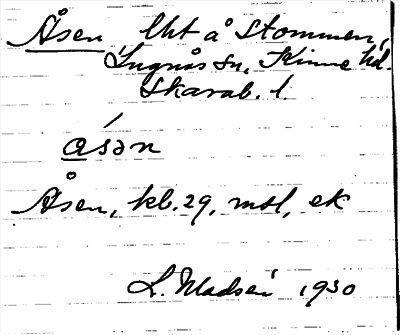 Åsen lht å Stommen,
Lugnås sn, Kinne hd.
Skarab. l.
åsən
Åsen, kb. 29, msl, ek
1930